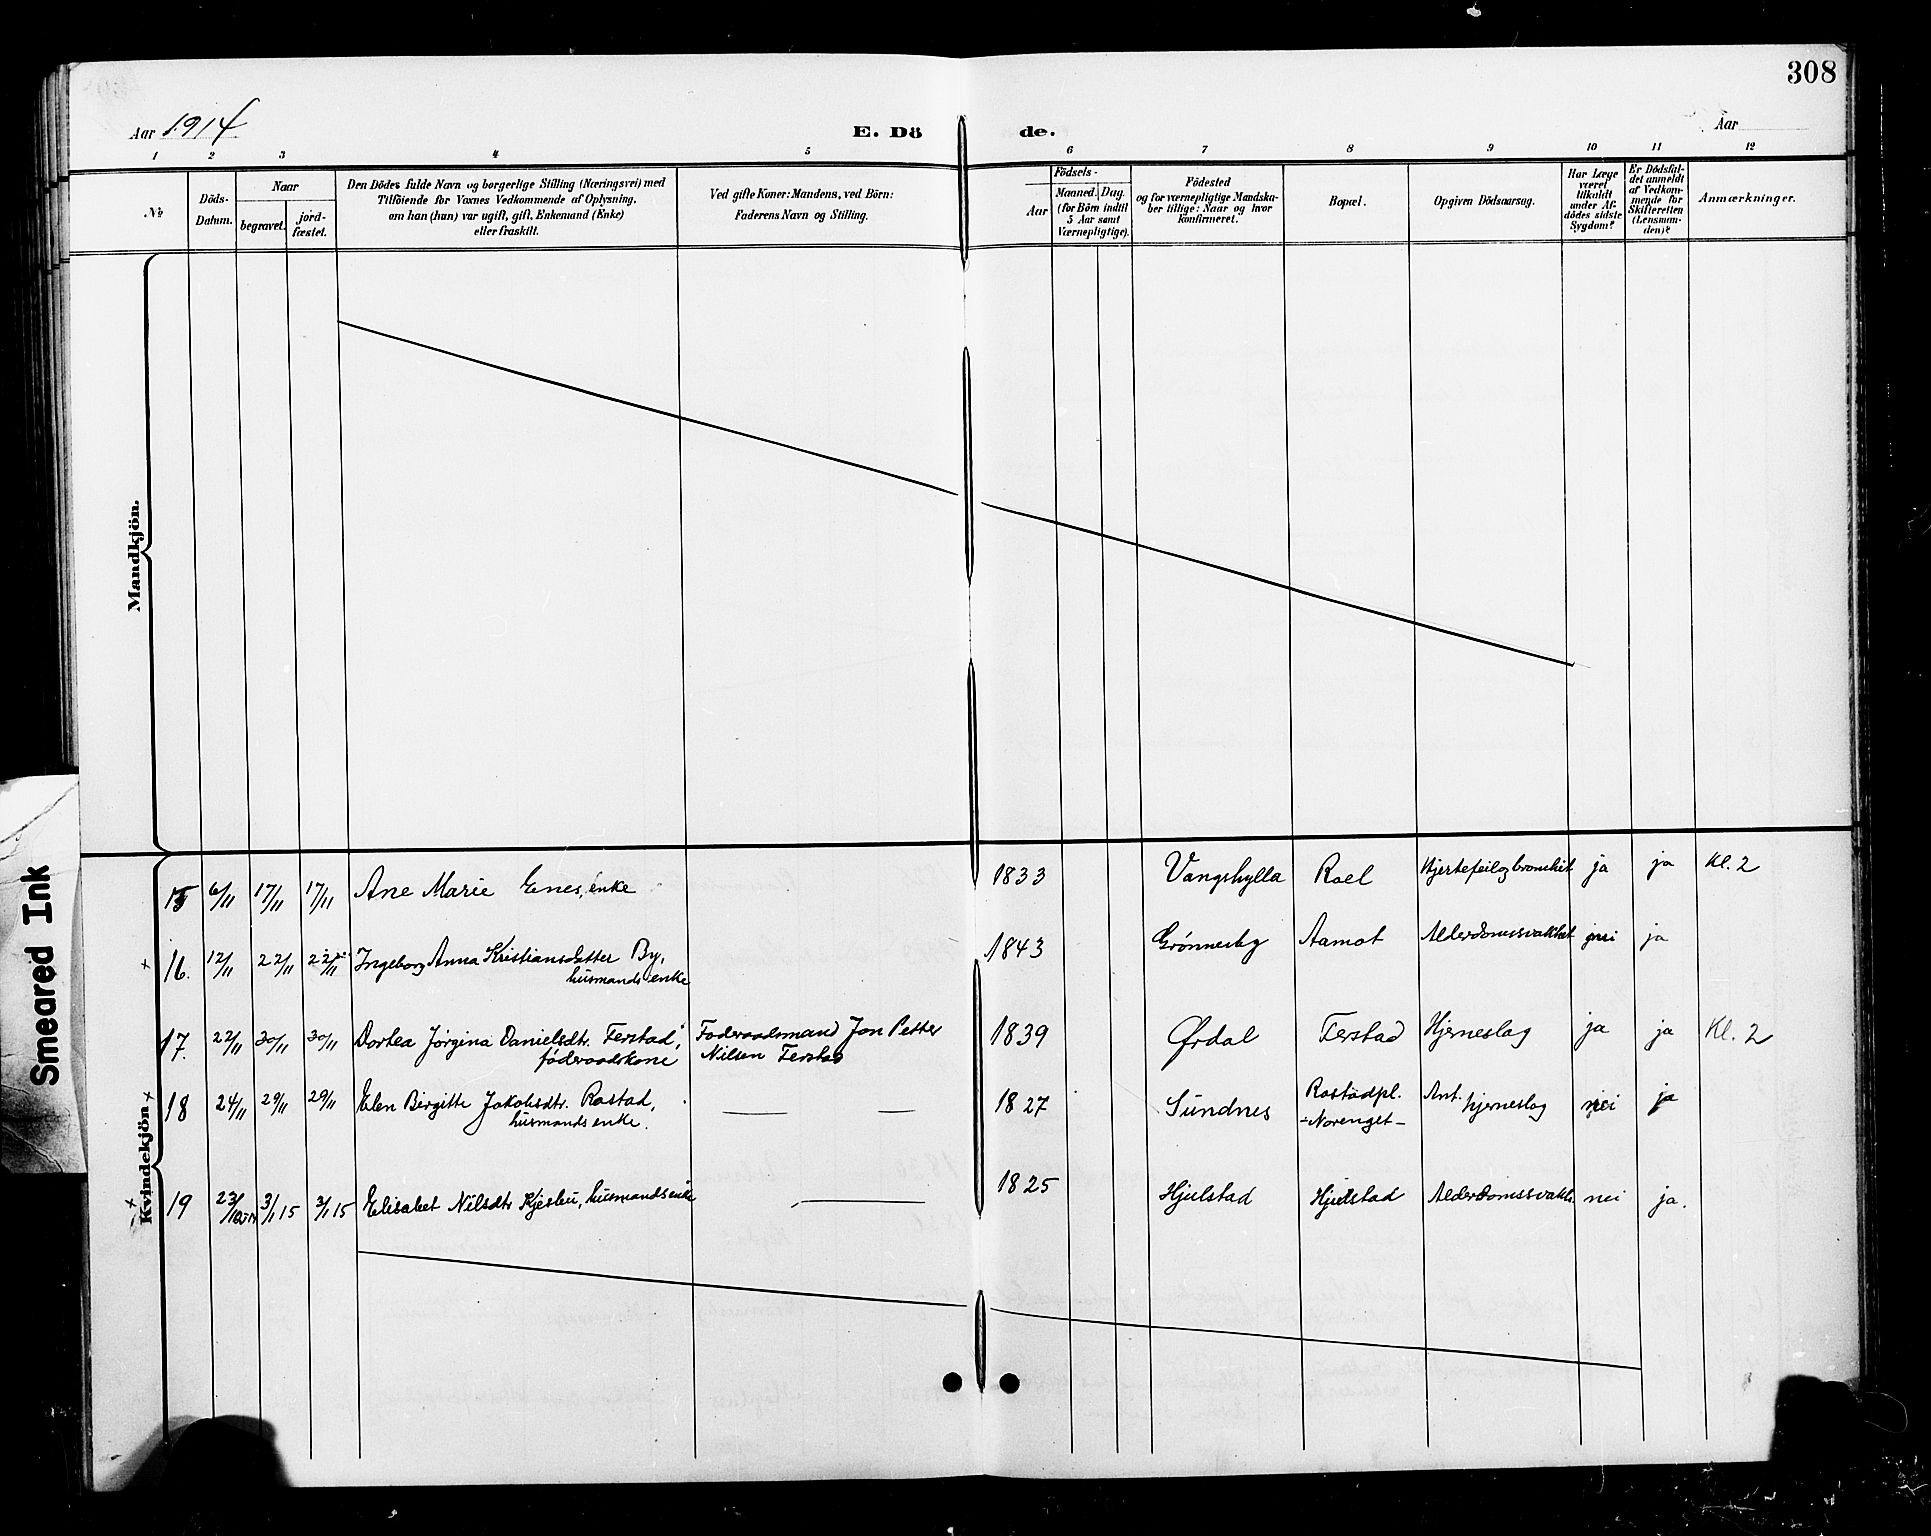 308
Aar 1914
E. Dö
de.
Aar
1 2 3 4 5 6 7 8 9 10 11 12
No
Döds-
Datum.
Naar
begravet.
jord-
fæstet.
Den Dödes fulde Navn og borgerlige Stilling (Næringsvei) med
Tilföiende for Voxnes Vedkommende af Oplysning,
om han (hun) var ugift, gift, Enkemand (Enke)
eller fraskilt.
Ved gifte Koner: Mandens, ved Börn:
Faderens Navn og Stilling.
Födsels-
Aar
Maaned. Dag.
(for Börn indtil
5 Aar samt
Værnepligtige).
Födested
og for værnepligtige Mandska-
ber tillige: Naar og hvor
konfirmeret.
Bopæl.
Opgiven Dödsaarsag.
Har Læge
været
tilkaldt
under Af-
dödes sidste
Sygdom?
Er Dödsfal-
det anmeldt
af Vedkom-
mende for
Skifteretten
(Lensman-
den)?
Anmærkninger.
Mandkjön.
Kvindekjön
15 6/11 17/11 17/11 Ane Marie Enes, enke 1833 Vangshylla Roel Hjertefeil og bronchit ja ja Kl. 2
16. 12/11 22/11 22/11 Ingeborg Anna Kristiansdatter By,
husmandsenke
1843 Grønnesby Aamot Alderdomssvakhet nei ja
17. 22/11 30/11 30/11 Dortea Jørgina Danielsdtr. Ferstad,
føderaadskone
Foderaadsmand Jon Petter
Nilsen Ferstad
1839 Ørdal Ferstad Hjerneslag ja ja Kl. 2
18 24/11 29/11 29/11 Elen Birgitte Jakobsdtr. Rostad,
husmandsenke.
— —
1827 Sundnes Rostadpl.
-Norenget-
Ant. hjerneslag nei ja
19 23/12 3/1 15 3/1 15 Elisabet Nilsdtr. husmandsenke — 1825 Hjulstad Hjulstad Alderdomssvakh. nei ja.
Smeared Ink